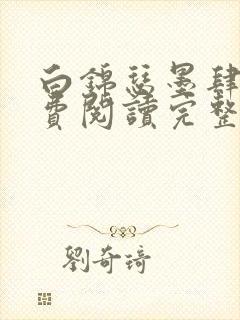 白錦瑟墨肆
費閱讀完整
劉奇琦